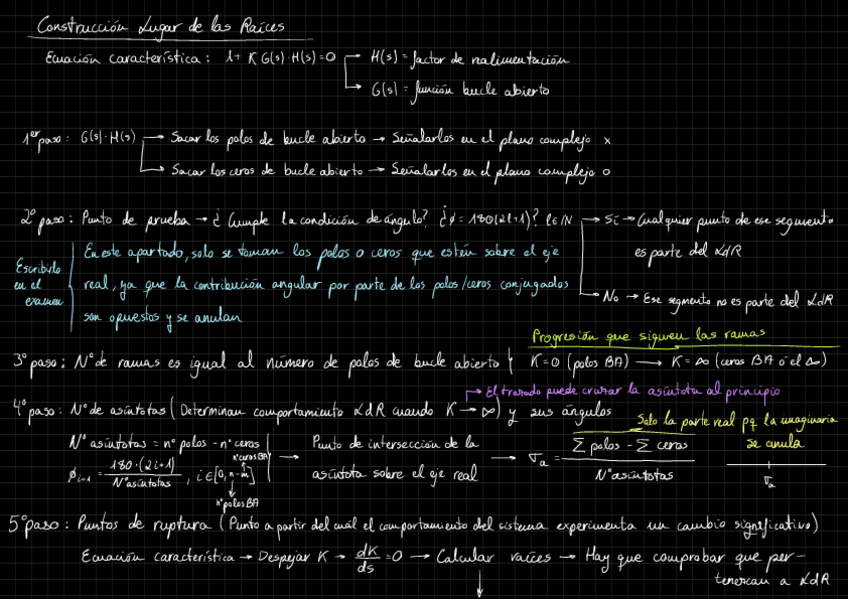 Construcción Lugar de las Raíces
Ecuación característica: 1+ K G(s)·H(s)=0 → H(s) = factor de realimentación
→ G(s) = función bucle abierto
1er paso: G(s)·H(s) → Sacar los polos de bucle abierto → Señalarlos en el plano complejo x
→ Sacar los ceros de bucle abierto → Señalarlos en el plano complejo o
2º paso: Punto de prueba → ¿Cumple la condición de ángulo? ¿φ = 180(2l+1)? l∈IN → Sí → Cualquier punto de ese segmento
es parte del LdR
→ No → Ese segmento no es parte del LdR
Escribirlo
en el
examen
En este apartado, solo se toman los polos o ceros que estén sobre el eje
real, ya que la contribución angular por parte de los polos/ceros conjugados
son opuestos y se anulan
Progresión que siguen las ramas
3º paso: Nº de ramas es igual al número de polos de bucle abierto { K=0 (polos BA) → K=∞ (ceros BA o el ∞)
→ El trazado puede cruzar la asíntota al principio
4º paso: Nº de asíntotas (Determinan comportamiento LdR cuando K→∞) y sus ángulos
Solo la parte real pq la imaginaria
se anula
Nº asíntotas = nº polos - nº ceros
φi+1 = 180·(2i+1) / Nº asíntotas , i∈[0, n-m]
nº ceros BA
nº polos BA
→ Punto de intersección de la
asíntota sobre el eje real
→ σa = ∑ polos - ∑ ceros / Nº asíntotas
σa
5º paso: Puntos de ruptura (Punto a partir del cuál el comportamiento del sistema experimenta un cambio significativo)
Ecuación característica → Despejar K → dK/ds = 0 → Calcular raíces → Hay que comprobar que per-
tenezcan a LdR